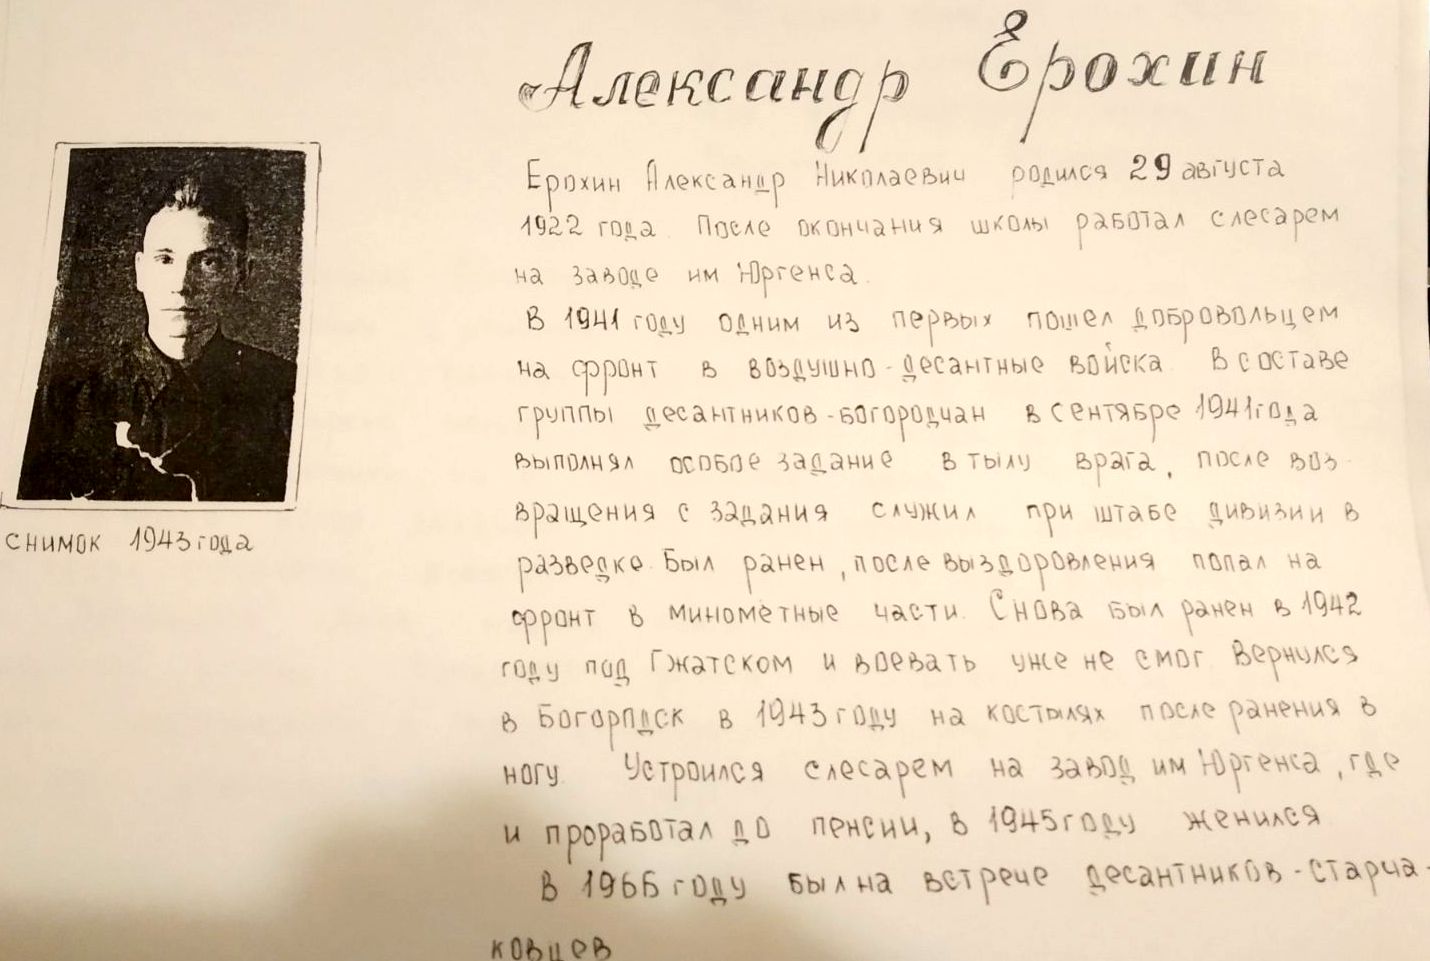 Александр Ерохин
Ерохин Александр Николаевич родился 29 августа
1922 года. После окончания школы работал слесарем
на заводе им Юргенса.
В 1941 году одним из первых пошел добровольцем
на фронт в воздушно-десантные войска. В составе
группы десантников-богородчан в сентябре 1941 года
выполнял особое задание в тылу врага, после воз-
вращения с задания служил при штабе дивизии в
разведке. Был ранен, после выздоровления попал на
фронт в минометные части. Снова был ранен в 1942
году под Гжатском и воевать уже не смог. Вернулся
в Богорпдск в 1943 году на костылях после ранения в
ногу. Устроился слесарем на завод им Юргенса, где
и проработал до пенсии, в 1945 году женился
В 1966 году был на встрече десантников-старча-
ковцев
снимок 1943 года